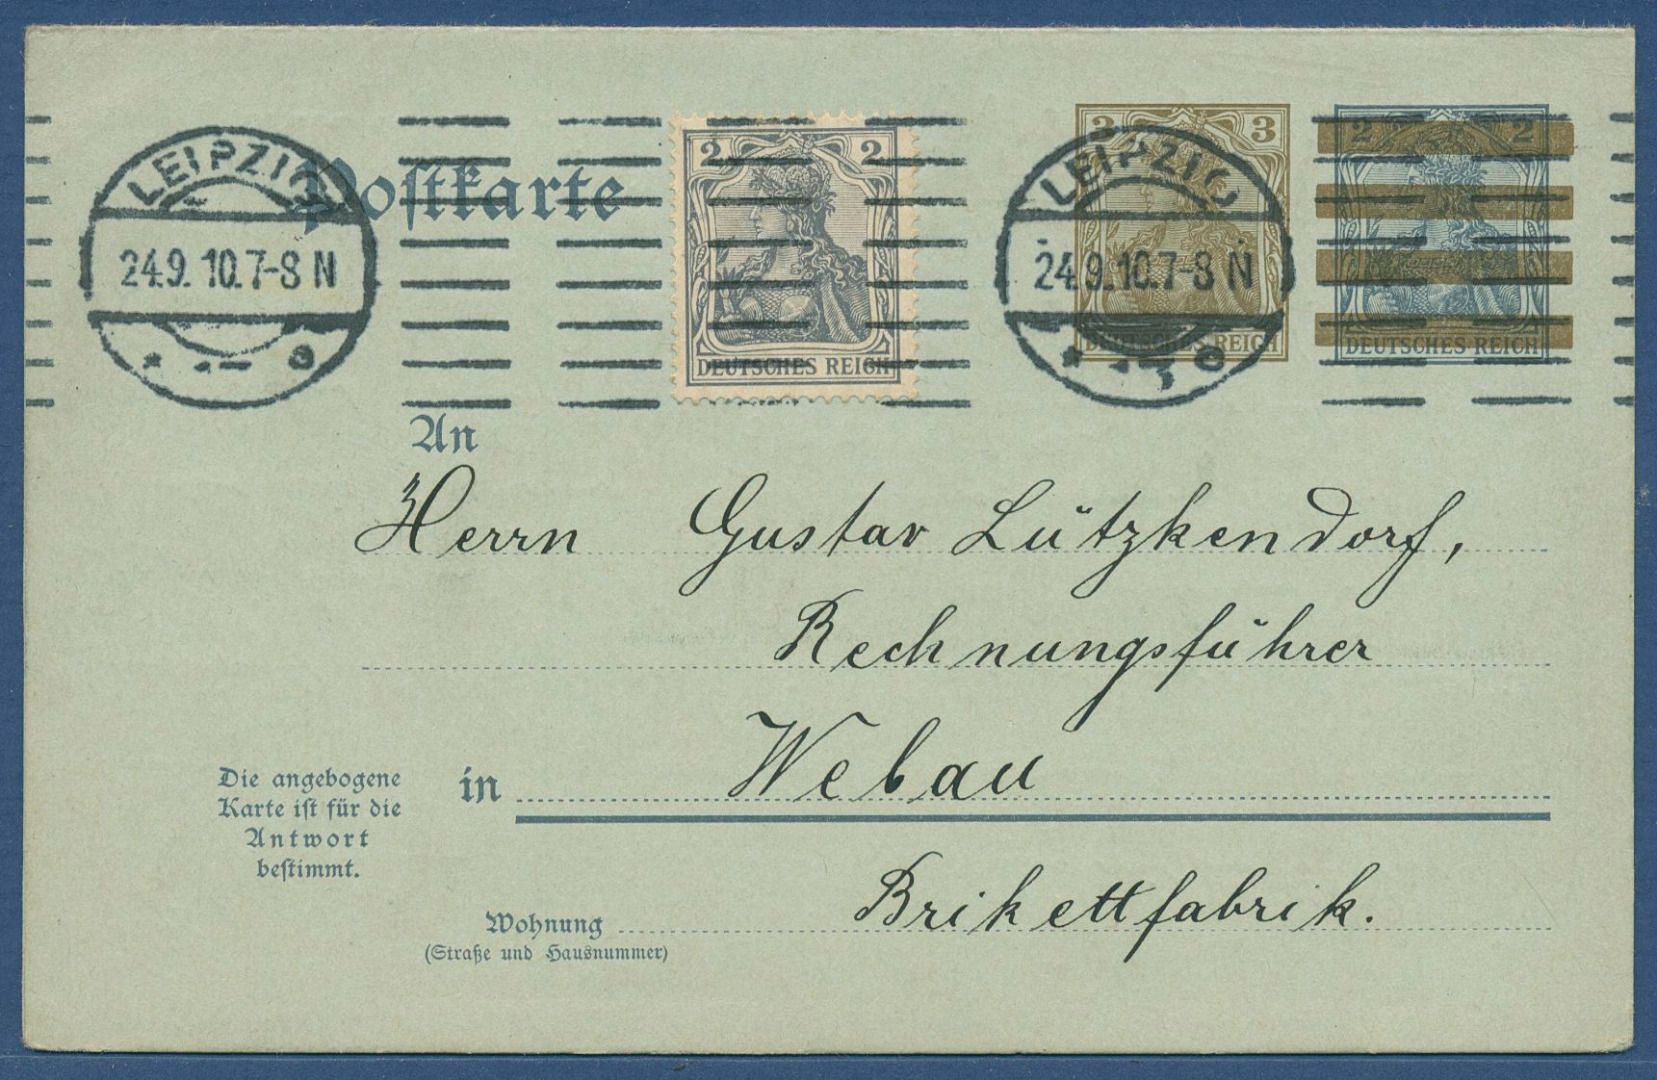 Postkarte
LEIPZIG
24.9.10.7-8 N
* 1 e
2 2
DEUTSCHES REICH
3 3
DEUTSCHES REICH
LEIPZIG
24.9.10.7-8 N
2 2
DEUTSCHES REICH
An
Herrn Gustav Lützkendorf,
Rechnungsführer
in Webau
Die angebogene
Karte ist für die
Antwort
bestimmt.
Brikettfabrik.
Wohnung
(Straße und Hausnummer)